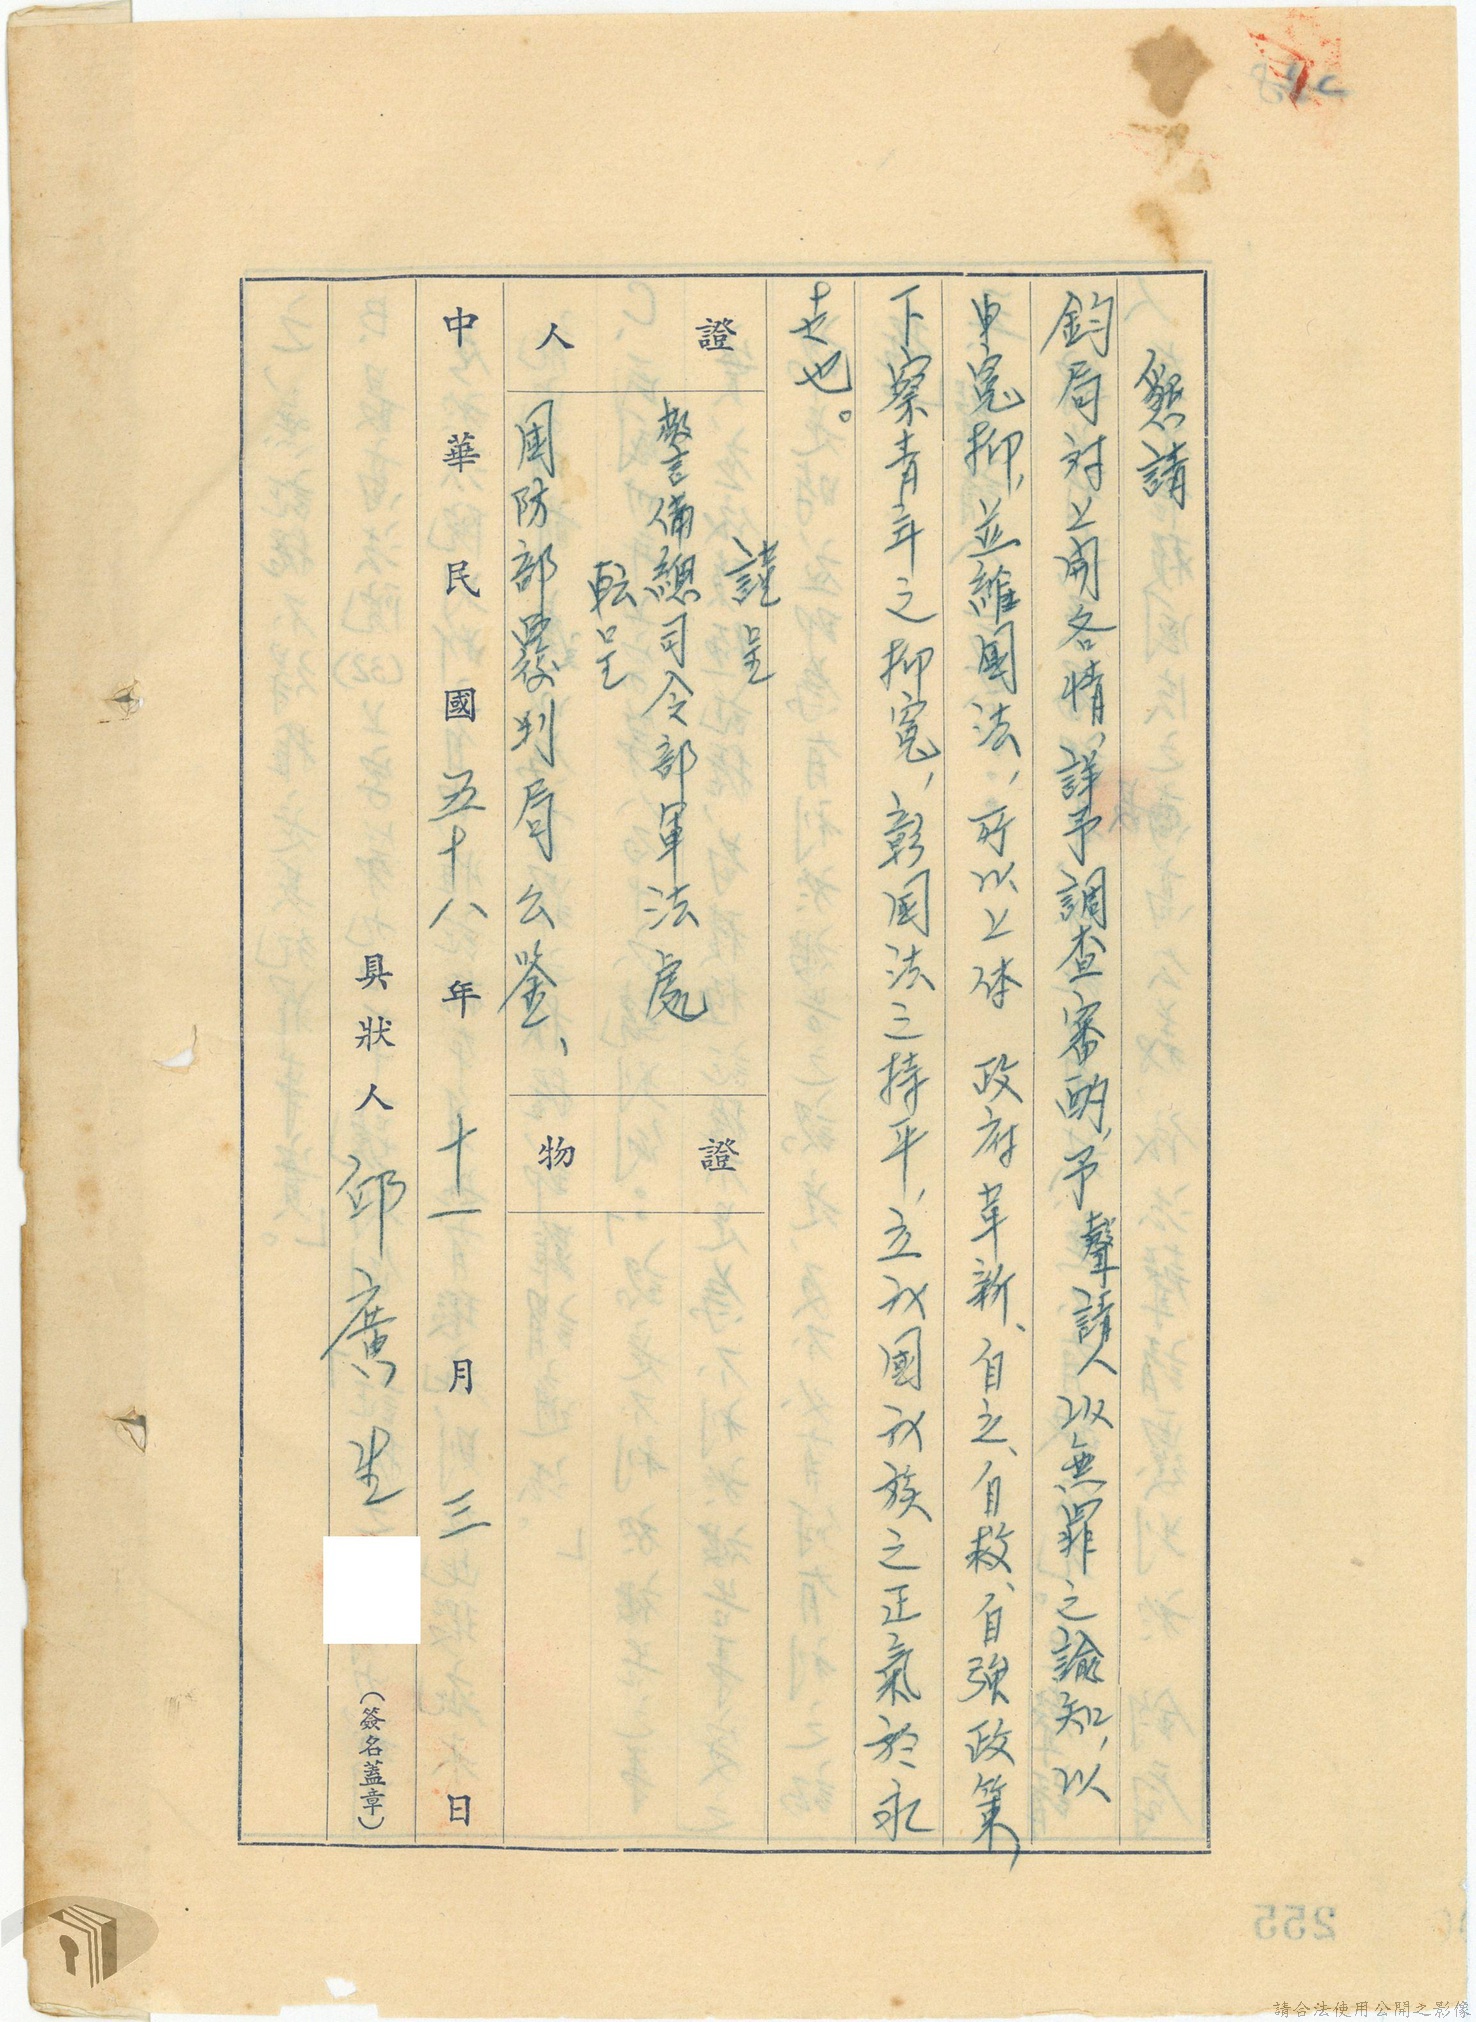 懇請
鈞局対上開各情、詳予調查審酌，予聲請人以無罪之諭知，以
申冤抑，並維國法，所以上体 政府革新、自立、自救、自強政策，
下察青年之抑冤，彰国法之持平，立我國我族之正氣於永
世也。
證人
謹呈
警備總司令部軍法處
転呈
国防部覆判局公鑒、
證物
中華民國五十八年十一月三日
具狀人 邱廣生 （簽名蓋章）
255
請合法使用公開之影像